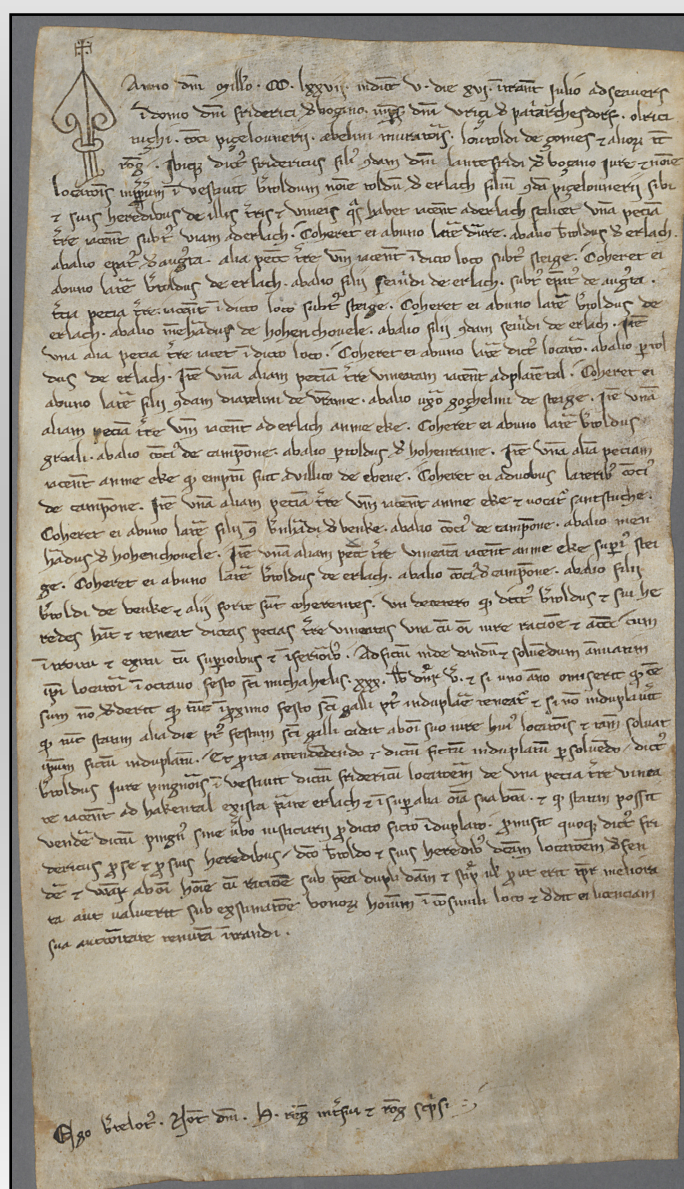 Anno dm̄ Mill'o. CC. lxxvij. indict̄ v. die xvj. int̄ant̄ Julio ad seavers
ī domo dm̄ friderici d' bozano. in p̄s. dm̄ Vrici d' patriarchesdorf. olrici
ruchi. cōci pigelounerij. abelini muratōis. louttoldi de gomes ⁊ alioꝝ t̄t
rog̃. Ibiqꝫ dict' fridericus fili' ꝗdam dm̄ lantefridi d' bozano Jure ⁊ nōīe
locatōis in vestivit b̄toldum nōīe d' erlach filiū ꝗdā pigelounerij sibi
⁊ suis heredibus de illis t̄ris ⁊ vineis q̄s habet iacent̄ ad erlach scilicet vnā peciā
t̄re iacent̄ subt' viam ad erlach. Coheret ei ab uno lat̄e. ab alio b̄toldus d' erlach.
ab alio ep̄at' d' augusta. alia pecī t̄re vin̄ iacent̄ ī dicto loco subt' steige. Coheret ei
ab uno lat̄e b̄toldus de erlach. ab alio filij de erlach. subt' ep̄at' de augusta.
t̄cia pecia t̄re. iacent̄ ī dicto loco subt' steige. Coheret ei ab uno lat̄e b̄toldus de
erlach. ab alio meinhadus de hohenhovele. ab alio filij ꝗdam de erlach. Itē
vna alia pecia t̄re iacet ī dicto loco. Coheret ei ab uno lat̄e dict' locator. ab alio p̄tol
dus de erlach. Itē vnā aliam peciā t̄re vineatam iacent̄ ad plātental. Coheret ei
ab uno lat̄e filij ꝗdam diatelini de. ab alio gochelini de steige. Itē vnā
aliam peciā t̄re vin̄ iacent̄ ad erlach anme eke. Coheret ei ab uno lat̄e b̄toldus
greali. ab alio cōci' de campōne. ab alio p̄toldus d' hohenraine. Itē vnā aliā peciam
iacent̄ anme eke q̄ emptū fuit a villico de ebene. Coheret ei a duobus laterib' cōci'
de campōne. Itē vnā aliam peciā t̄re vin̄ iacent̄ anme eke ⁊ vocat' santstuche.
Coheret ei ab uno lat̄e filij ꝗ b̄nhādi d' venke. ab alio cōci' de campōne. ab alio mein
hādus d' hohenhovele. Itē vnā aliam pecī t̄re vineatā iacent̄ anme eke sup̄i' stei
ge. Coheret ei ab uno lat̄e b̄toldus de erlach. ab alio cōci' d' campōne. ab alio filij
b̄toldi de venke ⁊ alij forit sunt coherentes. Vn̄ decetero q̄ dict' b̄toldus ⁊ sui he
redes hānt ⁊ teneat dictas pecias t̄re vineatas vna cū oī iure racione ⁊ acc̄ē cum
ītroitu ⁊ exitu cū sup̄ioribus ⁊ īferiorib'. Ad fictum inde dandū ⁊ soluendum annuatim
ip̄i locatōi ī octavo festo sc̄i michahelis. xxx. lib. dn̄r v̄. ⁊ si uno āno omiserit q̄ cē
sum nō dederit q̄ tūc ī proximo festo sc̄i galli pt' induplare teneat' ⁊ si nō induplauit
q̄ tūc statim alia die pt' festum sc̄i galli cadit ab oī suo iure hui' locatōis ⁊ tam̄ soluat
ip̄um fictum induplatū. Et p̄ ita attendendo ⁊ dictū fictū induplatū persoluēdo. dict'
b̄toldus Jure pingnōis ī vestivit dictū fridericū locatorem de vna pecia t̄re vinea
te iacent̄ ad hakental exista prate erlach ⁊ ī sup̄ alia oīa sua bona. ⁊ q̄ statim possit
vendē dictū pingn' sine v̄bo iusticiarij p̄ dicto ficto īduplato. promisit quoqꝫ dict' fri
dericus p̄ se ⁊ p̄ suis heredibus. dc̄o b̄toldo ⁊ suis heredib' dictam locatōem defen
dē ⁊ ab oī hoīe cū racione sub pena dupli dāni ⁊ stip' ut p̄ ut erit meliora
ta aut valuerit sub exstimatōe bonoꝝ hoīum ī cōsimili loco ⁊ dedit ei licenciam
sua auctoritate tenutā ītrandi.
Ego b̄telot'. Not̄ dm̄. h. reg̃ int̄fui ⁊ rog̃ sc̄psi